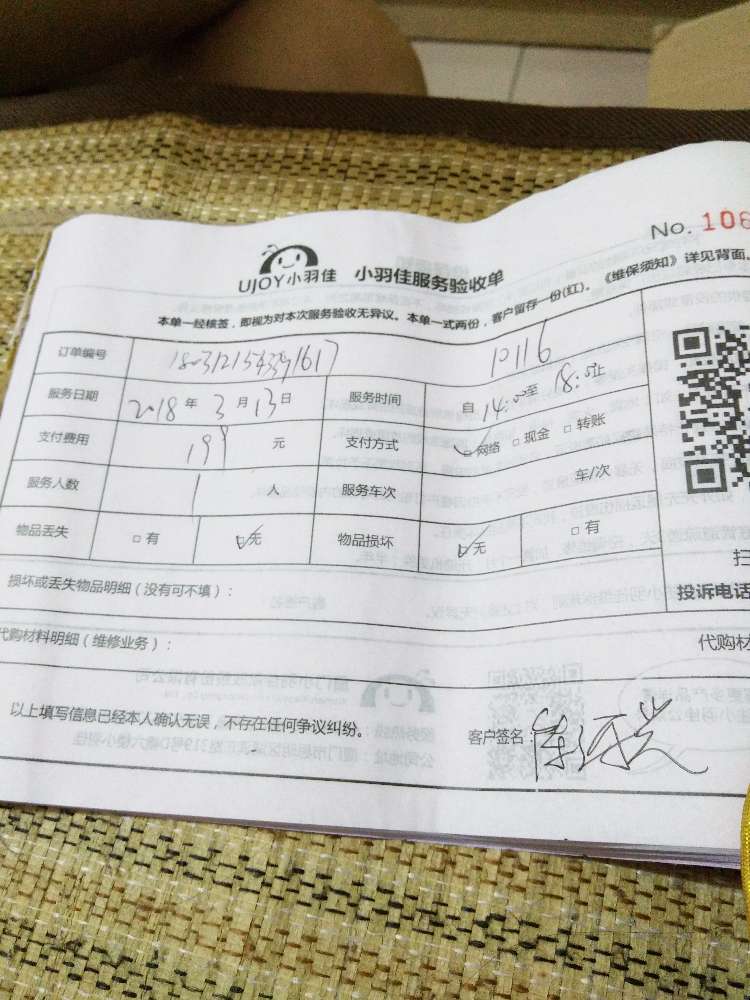 No. 106
UJOY小羽佳 小羽佳服务验收单
本单一经核签，即视为对本次服务验收无异议。本单一式两份，客户留存一份(红)。《维保须知》详见背面。
订单编号 1803121543391617 10116
服务日期 2018 年 3 月 13 日 服务时间 自 14:00 至 18:00 止
支付费用 199 元 支付方式 ☑网络 □现金 □转账
服务人数 1 人 服务车次 车/次
物品丢失 □有 ☑无 物品损坏 ☑无 □有
损坏或丢失物品明细（没有可不填）：
扫
投诉电话
代购材料明细（维修业务）：
代购材
以上填写信息已经本人确认无误，不存在任何争议纠纷。
客户签名：